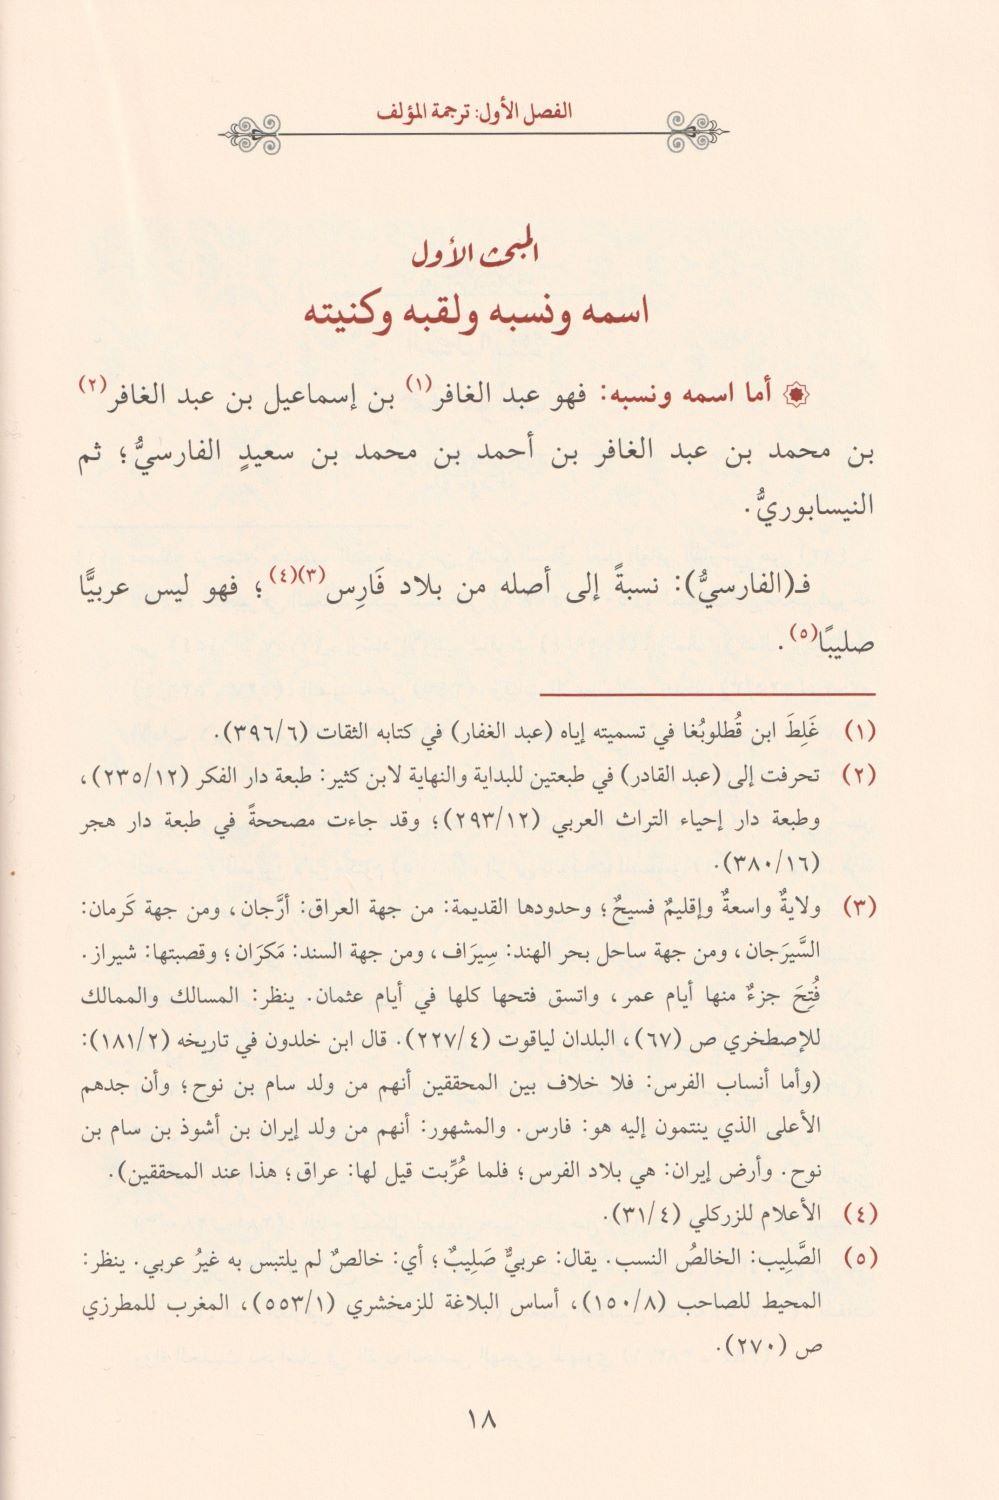 الفصل الأول: ترجمة المؤلف
المبحث الأول
اسمه ونسبه ولقبه وكنيته
أما اسمه ونسبه: فهو عبد الغافر(١) بن إسماعيل بن عبد الغافر(٢)
بن محمد بن عبد الغافر بن أحمد بن محمد بن سعيدٍ الفارسيُّ؛ ثم
النيسابوريُّ.
فـ(الفارسيُّ): نسبةً إلى أصله من بلاد فَارِس(٣)(٤)؛ فهو ليس عربيًّا
صليبًا(٥).
(١) غَلِطَ ابن قُطلوبُغا في تسميته إياه (عبد الغفار) في كتابه الثقات (٣٩٦/٦).
(٢) تحرفت إلى (عبد القادر) في طبعتين للبداية والنهاية لابن كثير: طبعة دار الفكر (٢٣٥/١٢)،
وطبعة دار إحياء التراث العربي (٢٩٣/١٢)؛ وقد جاءت مصححةً في طبعة دار هجر
(٣٨٠/١٦).
(٣) ولايةٌ واسعةٌ وإقليمٌ فسيحٌ؛ وحدودها القديمة: من جهة العراق: أرَّجان، ومن جهة كَرمان:
السَّيرَجان، ومن جهة ساحل بحر الهند: سِيرَاف، ومن جهة السند: مَكرَان؛ وقصبتها: شيراز.
فُتِحَ جزءٌ منها أيام عمر، واتسق فتحها كلها في أيام عثمان. ينظر: المسالك والممالك
للإصطخري ص (٦٧)، البلدان لياقوت (٢٢٧/٤). قال ابن خلدون في تاريخه (١٨١/٢):
(وأما أنساب الفرس: فلا خلاف بين المحققين أنهم من ولد سام بن نوح؛ وأن جدهم
الأعلى الذي ينتمون إليه هو: فارس. والمشهور: أنهم من ولد إيران بن أشوذ بن سام بن
نوح. وأرض إيران: هي بلاد الفرس؛ فلما عُرِّبت قيل لها: عراق؛ هذا عند المحققين).
(٤) الأعلام للزركلي (٣١/٤).
(٥) الصَّلِيب: الخالصُ النسب. يقال: عربيٌّ صَلِيبٌ؛ أي: خالصٌ لم يلتبس به غيرُ عربي. ينظر:
المحيط للصاحب (١٥٠/٨)، أساس البلاغة للزمخشري (٥٥٣/١)، المغرب للمطرزي
ص (٢٧٠).
١٨